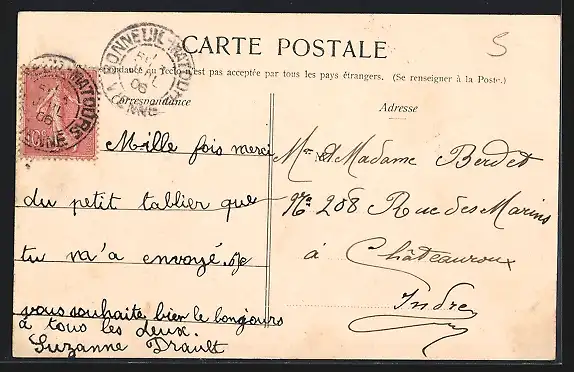 CARTE POSTALE
5
Correspondance au recto n'est pas acceptée par tous les pays étrangers. (Se renseigner à la Poste.)
Correspondance
Adresse
BONNEUIL-MATOURS
VIENNE
06
Mille fois merci
du petit tablier que
tu m'a envoyé. Je
vous souhaite bien le bonjours
à tous les deux.
Suzanne Drault
Mr et Madame Berdet
No 208 Rue des Marins
à Châteauroux
Indre